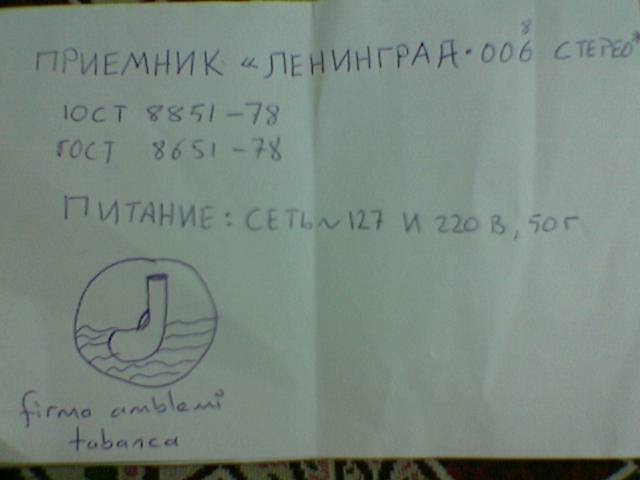 ПРИЕМНИК «ЛЕНИНГРАД-006 8 СТЕРЕО*
ГОСТ 8851-78
ГОСТ 8651-78
ПИТАНИЕ: СЕТЬ ~ 127 И 220 В, 50 г
firma amblemi
tabanca